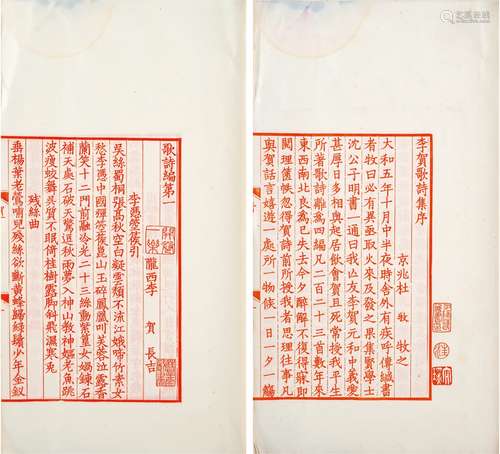 李賀歌詩集序
京兆杜 牧 牧之
大和五年十月中半夜時舍外有疾呼傳緘書
者牧曰必有異亟取火來及發之果集賢學士
沈公子明書一通曰我亡友李賀元和中義愛
甚厚日夕相與起居飲食賀且死嘗授我平生
所著歌詩離為四編凡二百二十三首數年來
東西南北良為已失去今夕醉解不復得寐即
閱理篋帙忽得賀詩前所授我者思理往事凡
與賀話言嬉遊一處所一物候一日一夕一觴
歌詩編第一
隴西李 賀 長吉
李憑箜篌引
吳絲蜀桐張高秋空白凝雲頹不流江娥啼竹素女
愁李憑中國彈箜篌崑山玉碎鳳凰叫芙蓉泣露香
蘭笑十二門前融冷光二十三絲動紫皇女媧鍊石
補天處石破天驚逗秋雨夢入神山教神嫗老魚跳
波瘦蛟舞吳質不眠倚桂樹露腳斜飛濕寒兔
殘絲曲
垂楊葉老鶯哺兒殘絲欲斷黃蜂歸綠鬢少年金釵